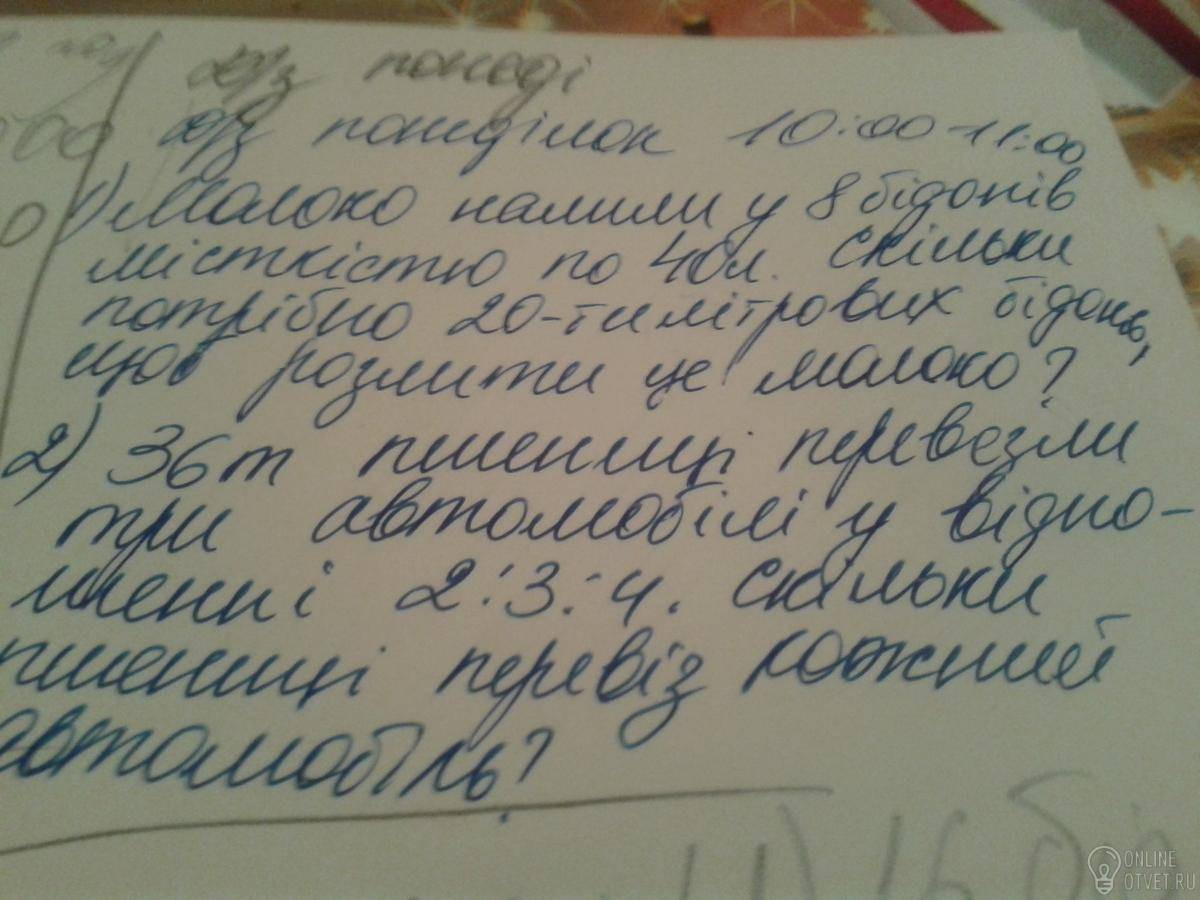 д/з понеді
д/з понеділок 10:00-11:00
1) Молоко налили у 8 бідонів
місткістю по 40л. Скільки
потрібно 20-ти літрових бідонів,
щоб розлити це молоко?
2) 36т пшениці перевезли
три автомобілі у відно-
шенні 2:3:4. Скільки
пшениці перевіз кожний
автомобіль?
1) 16 бі
ONLINE
OTVET.RU